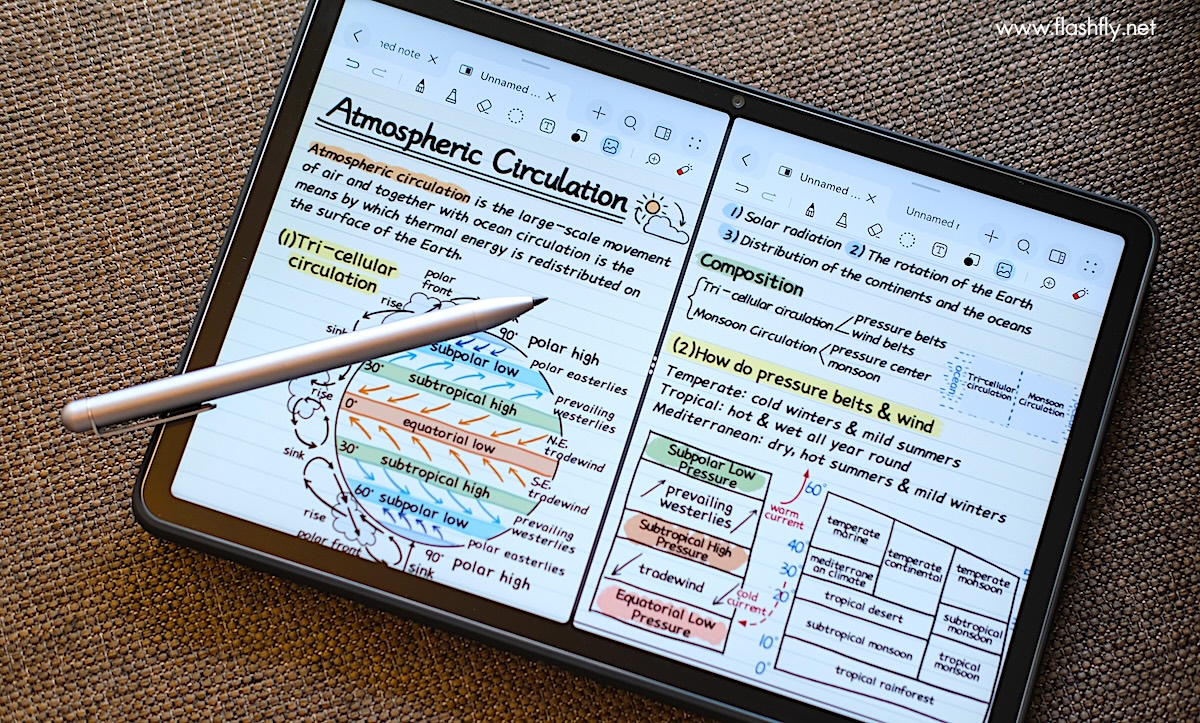 www.flashfly.net
ned note
Unnamed ...
Atmospheric Circulation
Atmospheric circulation is the large-scale movement
of air and together with ocean circulation is the
means by which thermal energy is redistributed on
the surface of the Earth.
(1)Tri-cellular
circulation
polar
front
rise
sink
90°
polar high
subpolar low
polar easterlies
30°
subtropical high
prevailing
westerlies
rise
0°
equatorial low
N.E.
tradewind
sink
30°
subtropical high
S.E.
tradewind
60°
subpolar low
prevailing
westerlies
rise
polar easterlies
polar front
90°
polar high
sink
Unnamed ...
Unnamed
1) Solar radiation 2) The rotation of the Earth
3) Distribution of the continents and the oceans
Composition
Tri-cellular circulation
Pressure belts
wind belts
Monsoon Circulation
pressure center
monsoon
ocean
Tri-cellular
circulation
Monsoon
Circulation
(2)How do pressure belts & wind
Temperate: cold winters & mild summers
Tropical: hot & wet all year round
Mediterranean: dry, hot summers & mild winters
Subpolar Low
Pressure
prevailing
westerlies
Subtropical High
Pressure
tradewind
Equatorial Low
Pressure
warm
current
cold
current
60°
40
30°
20°
10°
0°
temperate
marine
temperate
continental
temperate
monsoon
mediterrane
an climate
tropical desert
subtropical
monsoon
subtropical monsoon
tropical
monsoon
tropical rainforest